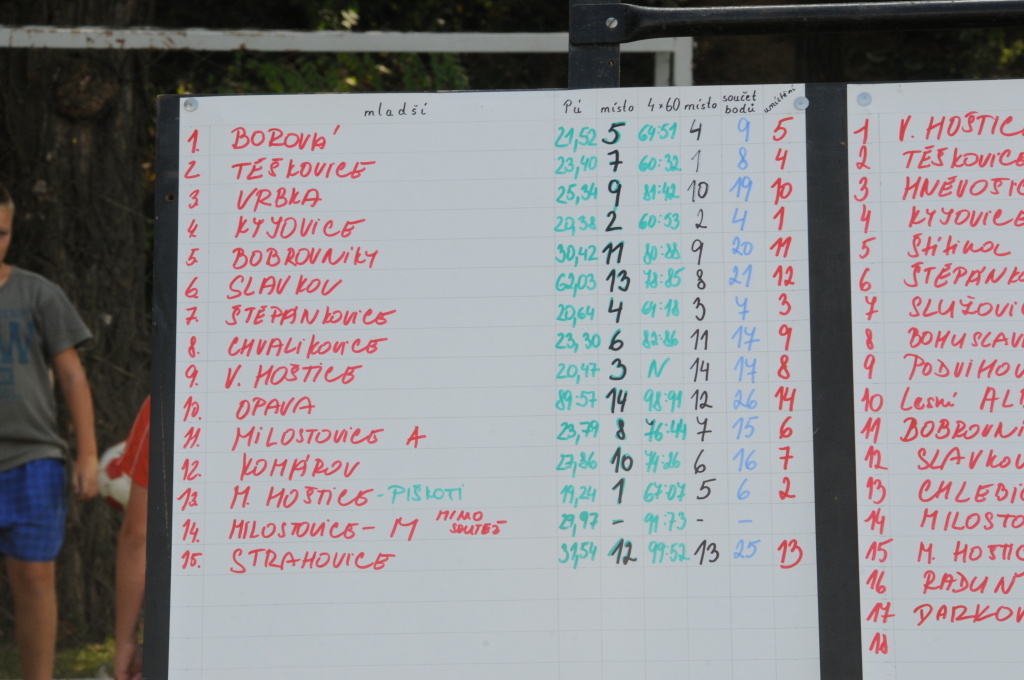 mladší PÚ místo 4×60 místo součet bodů umístění
1. BOROVÁ 21,52 5 64:51 4 9 5
2. TĚŠKOVICE 23,40 7 60:32 1 8 4
3 VRBKA 25,34 9 81:42 10 19 10
4. KYJOVICE 20,38 2 60:53 2 4 1
5 BOBROVNÍKY 30,42 11 80:88 9 20 11
6. SLAVKOV 62,03 13 78:85 8 21 12
7. ŠTĚPÁNKOVICE 20,64 4 64:18 3 7 3
8. CHVALÍKOVICE 23,30 6 82:86 11 17 9
9. V. HOŠTICE 20,47 3 N 14 17 8
10. OPAVA 89:57 14 98:91 12 26 14
11. MILOSTOVICE A 23,79 8 76:44 7 15 6
12. KOMÁROV 27,86 10 71:26 6 16 7
13. M. HOŠTICE - PIŠKOTI 19,24 1 67:07 5 6 2
14. MILOSTOVICE - M MIMO SOUTĚŽ 29,97 - 91:73 - -
15. STRAHOVICE 31,54 12 99:52 13 25 13
1 V. HOŠTIC
2 TĚŠKOVICE
3 HNĚVOŠIC
4 KYJOVICE
5 Štítina
6 ŠTĚPÁNKO
7 SLUŽOVIC
8 BOHUSLAV
9 PODVIHOV
10 Lesní ALB
11 BOBROVNÍ
12 SLAVKOV
13 CHLEBIČ
14 MILOSTO
15 M. HOŠTIC
16 RADUŇ
17 DARKOV
18